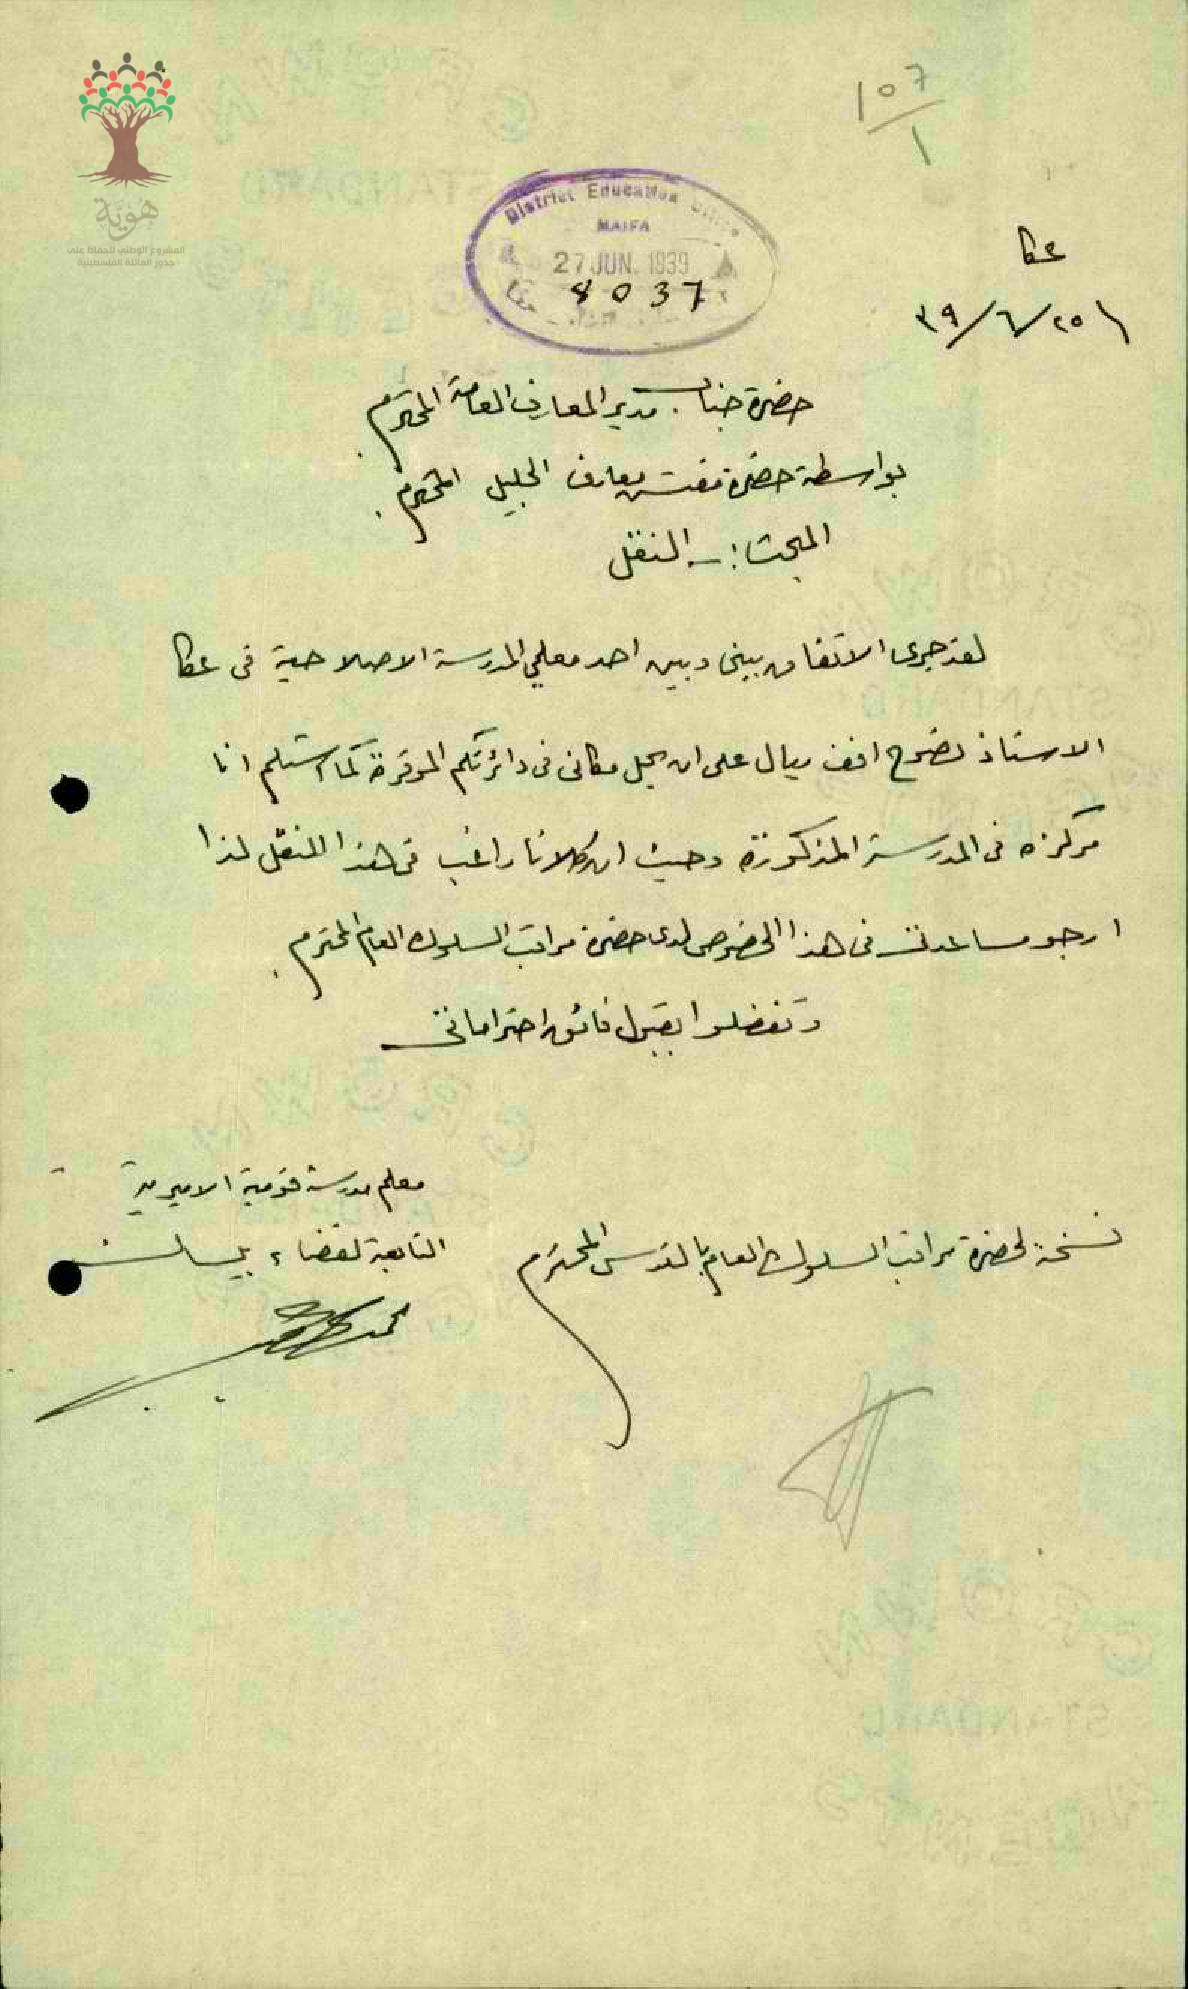 107
1
هوية
المشروع الوطني للحفاظ على
جذور العائلة الفلسطينية
District Education Office
HAIFA
27 JUN. 1939
4037
عكا
٢٥/٦/٣٩
حضرة جناب مدير المعارف العامة المحترم
بواسطة حضرة مفتش معارف الجليل المحترم.
المبحث :- النقل
لقد جرى الاتفاق بيني وبين احد معلمي المدرسة الاصلاحية في عكا
الاستاذ نصوح افندي ميال على ان يحل مكاني في دائرتكم الموقرة كما استلم انا
مركزه في المدرسة المذكورة وحيث ان كلانا راغب في هذا النقل لذا
ارجو مساعدتي في هذا الخصوص لدى حضرة مراقب السلوك العام المحترم.
وتفضلوا بقبول فائق احتراماتي
معلم مدرسة قومية الاميرية
التابعة لقضاء بيسان
نسخة لحضرة مراقب السلوك العام بالقدس المحترم